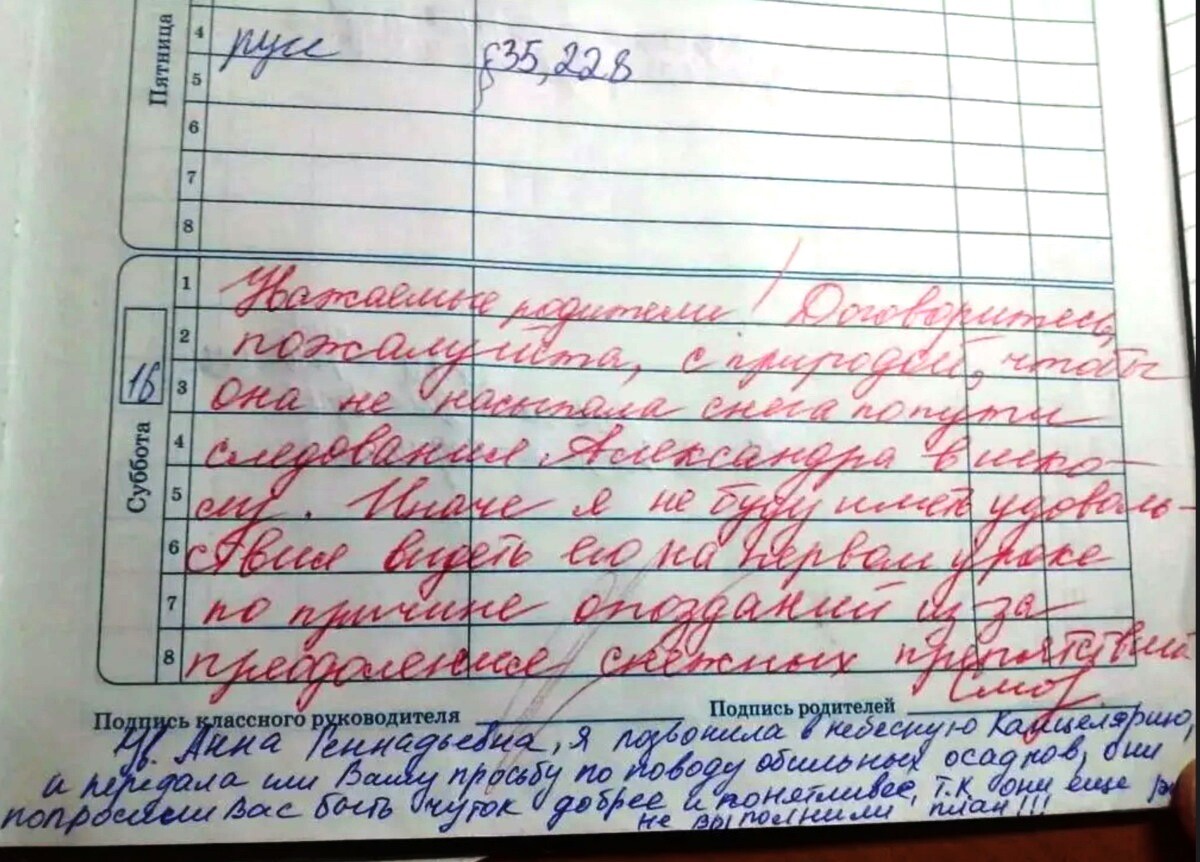 Пятница
4 русс §35, 228
5
6
7
8
Суббота
16
1 Уважаемые родители! Договоритесь,
2 пожалуйста, с природой, чтобы
3 она не насыпала снега по пути
4 следования Александра в шко-
5 лу. Иначе я не буду иметь удоволь-
6 ствия видеть его на первом уроке
7 по причине опозданий из-за
8 преодоления снежных препятствий
Подпись классного руководителя Подпись родителей
Ув. Анна Геннадьевна, я позвонила в небесную Канцелярию,
и передала им Вашу просьбу по поводу обильных осадков, они
попросили Вас быть чуток добрее и понятливее, т.к они еще
не выполнили план!!!